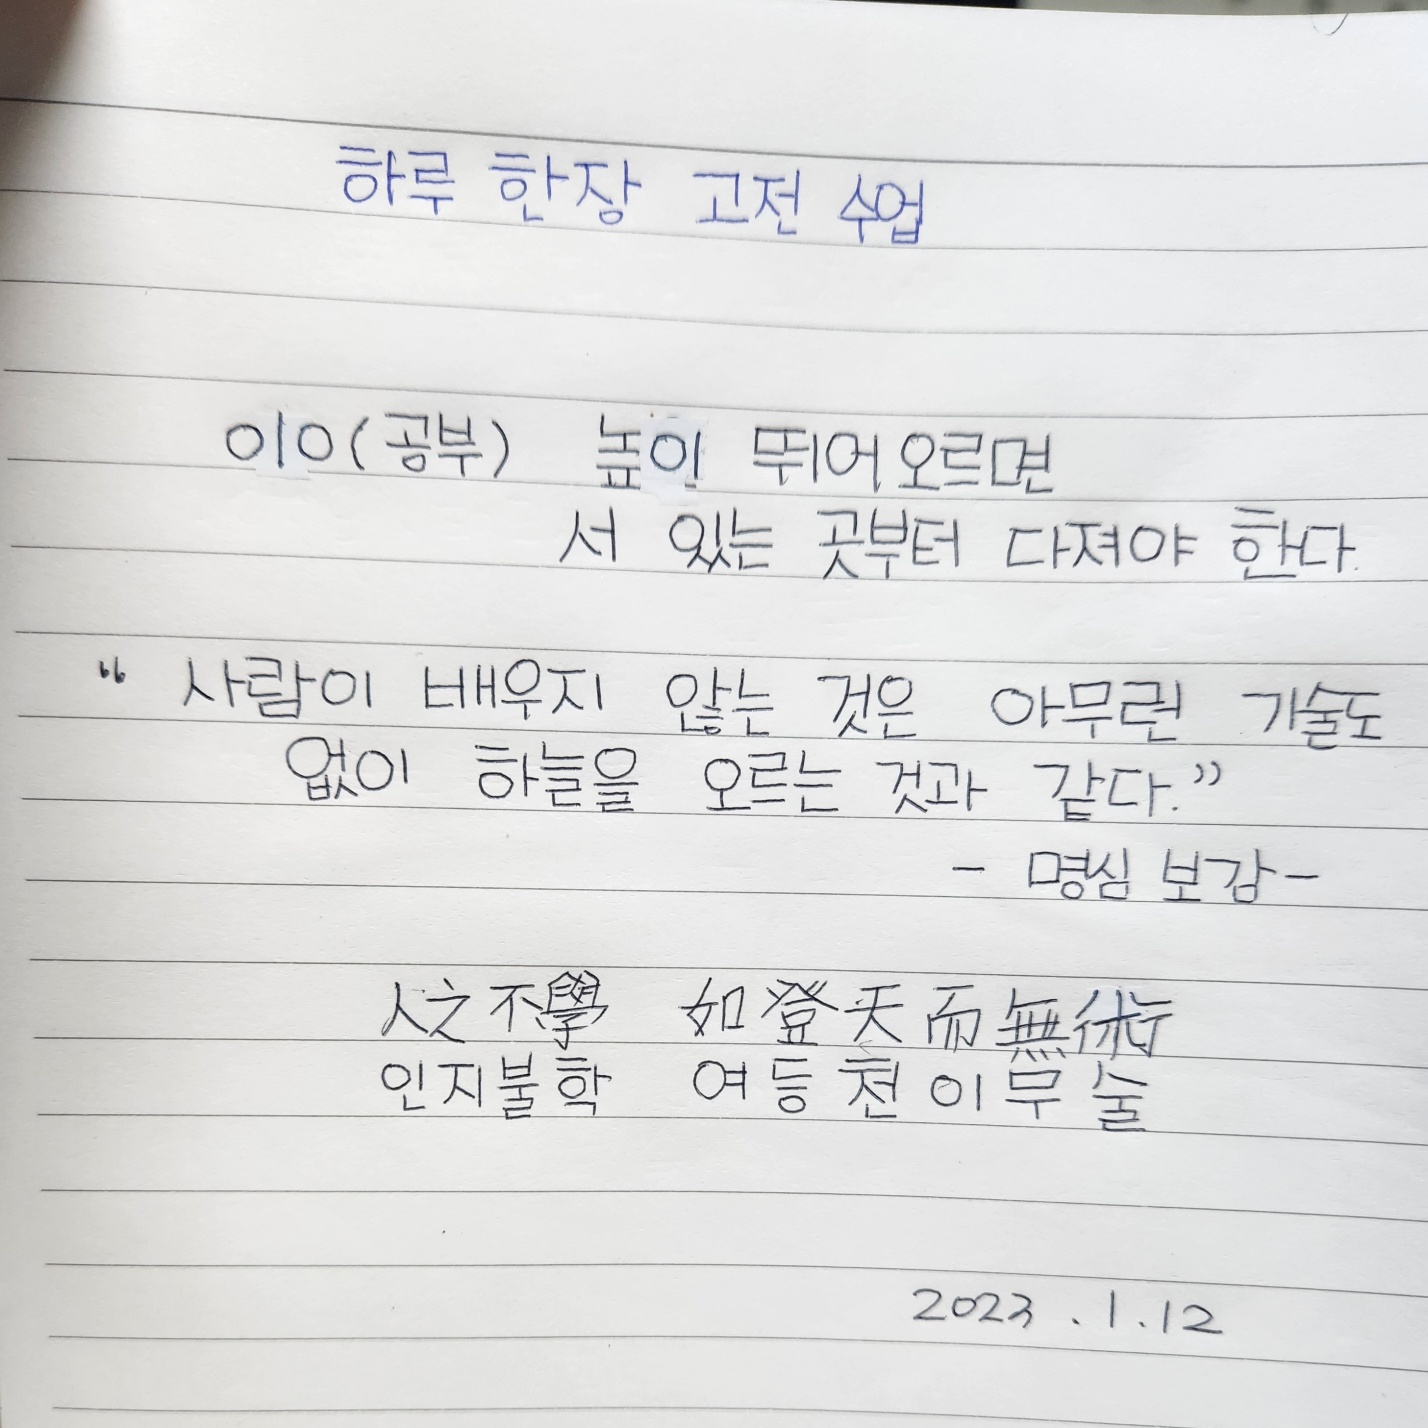 하루 한장 고전 수업
010(공부) 높이 뛰어오르면
서 있는 곳부터 다져야 한다.
“사람이 배우지 않는 것은 아무런 기술도
없이 하늘을 오르는 것과 같다.”
- 명심 보감 -
人之不學 如登天而無術
인지불학 여등천이무술
2023.1.12